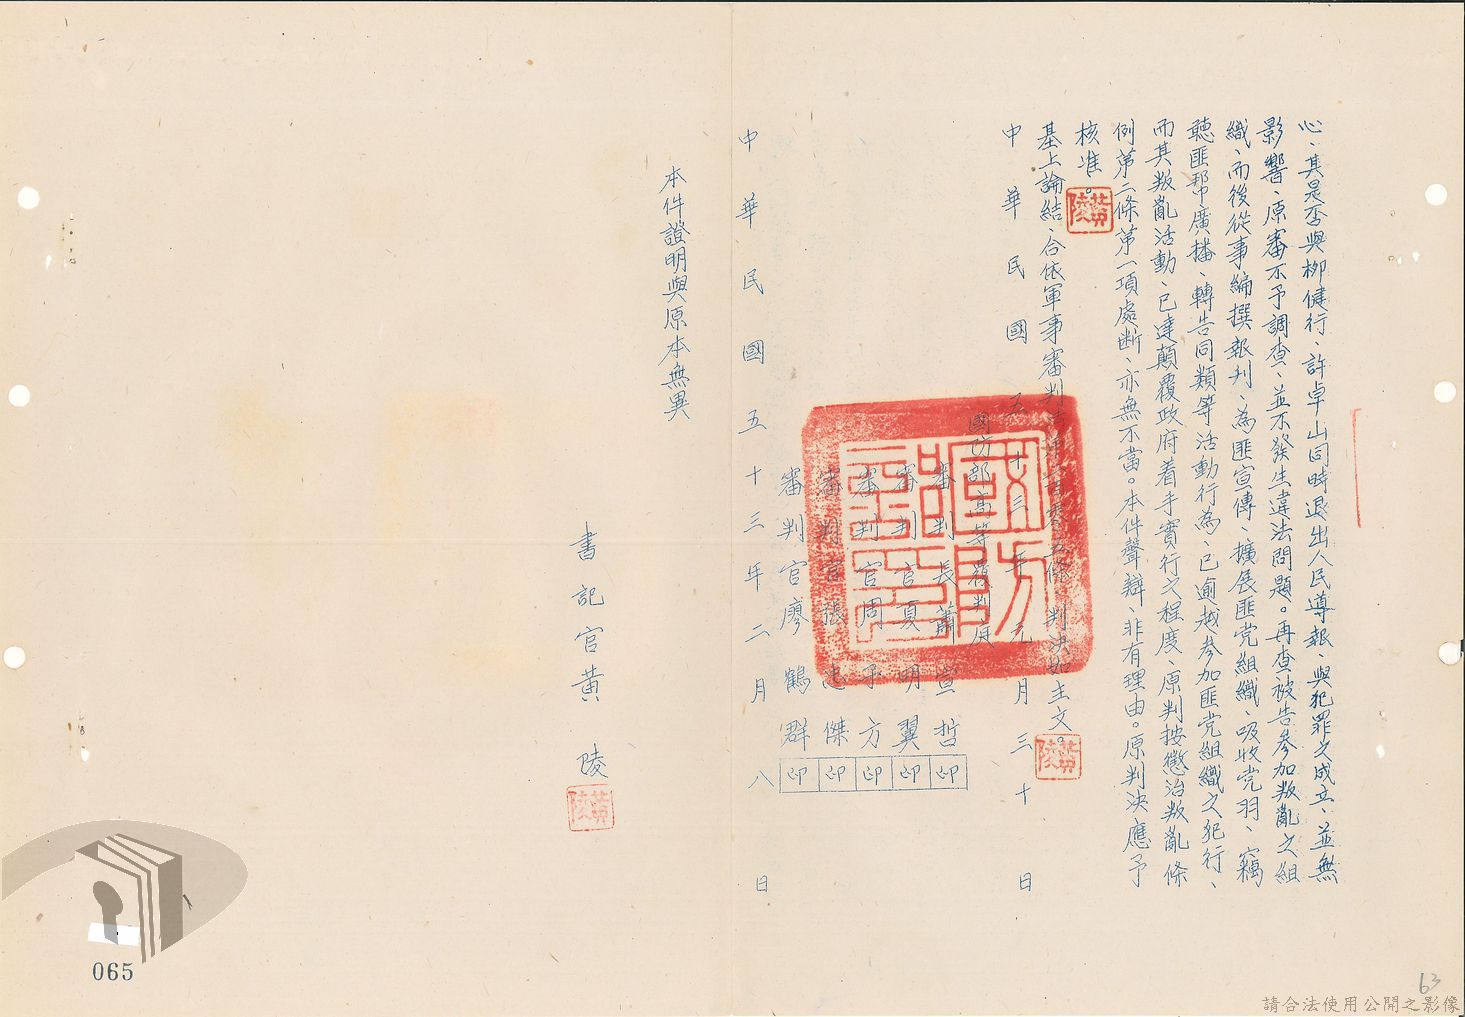 心、其是否與柳健行、許卓山同時退出人民導報、與犯罪之成立、並無
影響、原審不予調查、並不發生違法問題。再查被告參加叛亂之組
織、而後從事編撰報刊、為匪宣傳、擴展匪党組織、吸收党羽、竊
聽匪幇廣播、轉告同類等活動行為、已逾越參加匪党組織之犯行、
而其叛亂活動、已達顛覆政府着手實行之程度、原判按懲治叛亂條
例第二條第一項處断、亦無不當。本件聲辯、非有理由。原判決應予
核准。
黃陵
基上論結、合依軍事審判法第二百零五條、判決如主文。
黃陵
中華民國五十三年元月三十日
國防部高等覆判庭
審判長蕭宣哲 印
審判官夏明翼 印
審判官周予方 印
審判官張忠傑 印
審判官廖鶴群 印
中華民國五十三年二月八日
本件證明與原本無異
書記官黃陵
黃陵
065
63
請合法使用公開之影像